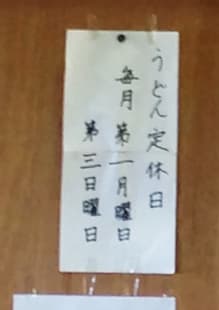 うどん定休日
毎月第一月曜日
第三日曜日